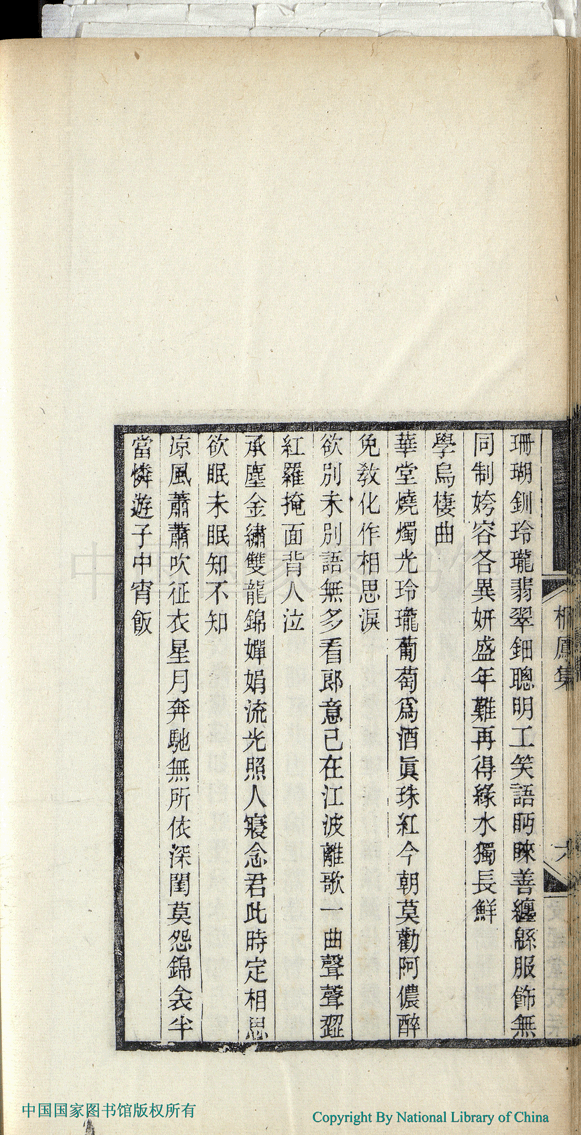 珊瑚釧玲瓏翡翠鈿聰明工笑語眄睞善纏緜服飾無
同制姱容各異妍盛年難再得緣水獨長鮮
學烏棲曲
華堂燒燭光玲瓏葡萄爲酒眞珠紅今朝莫勸阿儂醉
免敎化作相思淚
欲別未別語無多看郎意已在江波離歌一曲聲聲澀
紅羅掩面背人泣
承塵金繡雙龍錦嬋娟流光照人寢念君此時定相思
欲眠未眠知不知
涼風蕭蕭吹征衣星月奔馳無所依深閨莫怨錦衾半
當憐遊子中宵飯
鳳集
六
中国国家图书馆
中国国家图书馆版权所有
Copyright By National Library of China